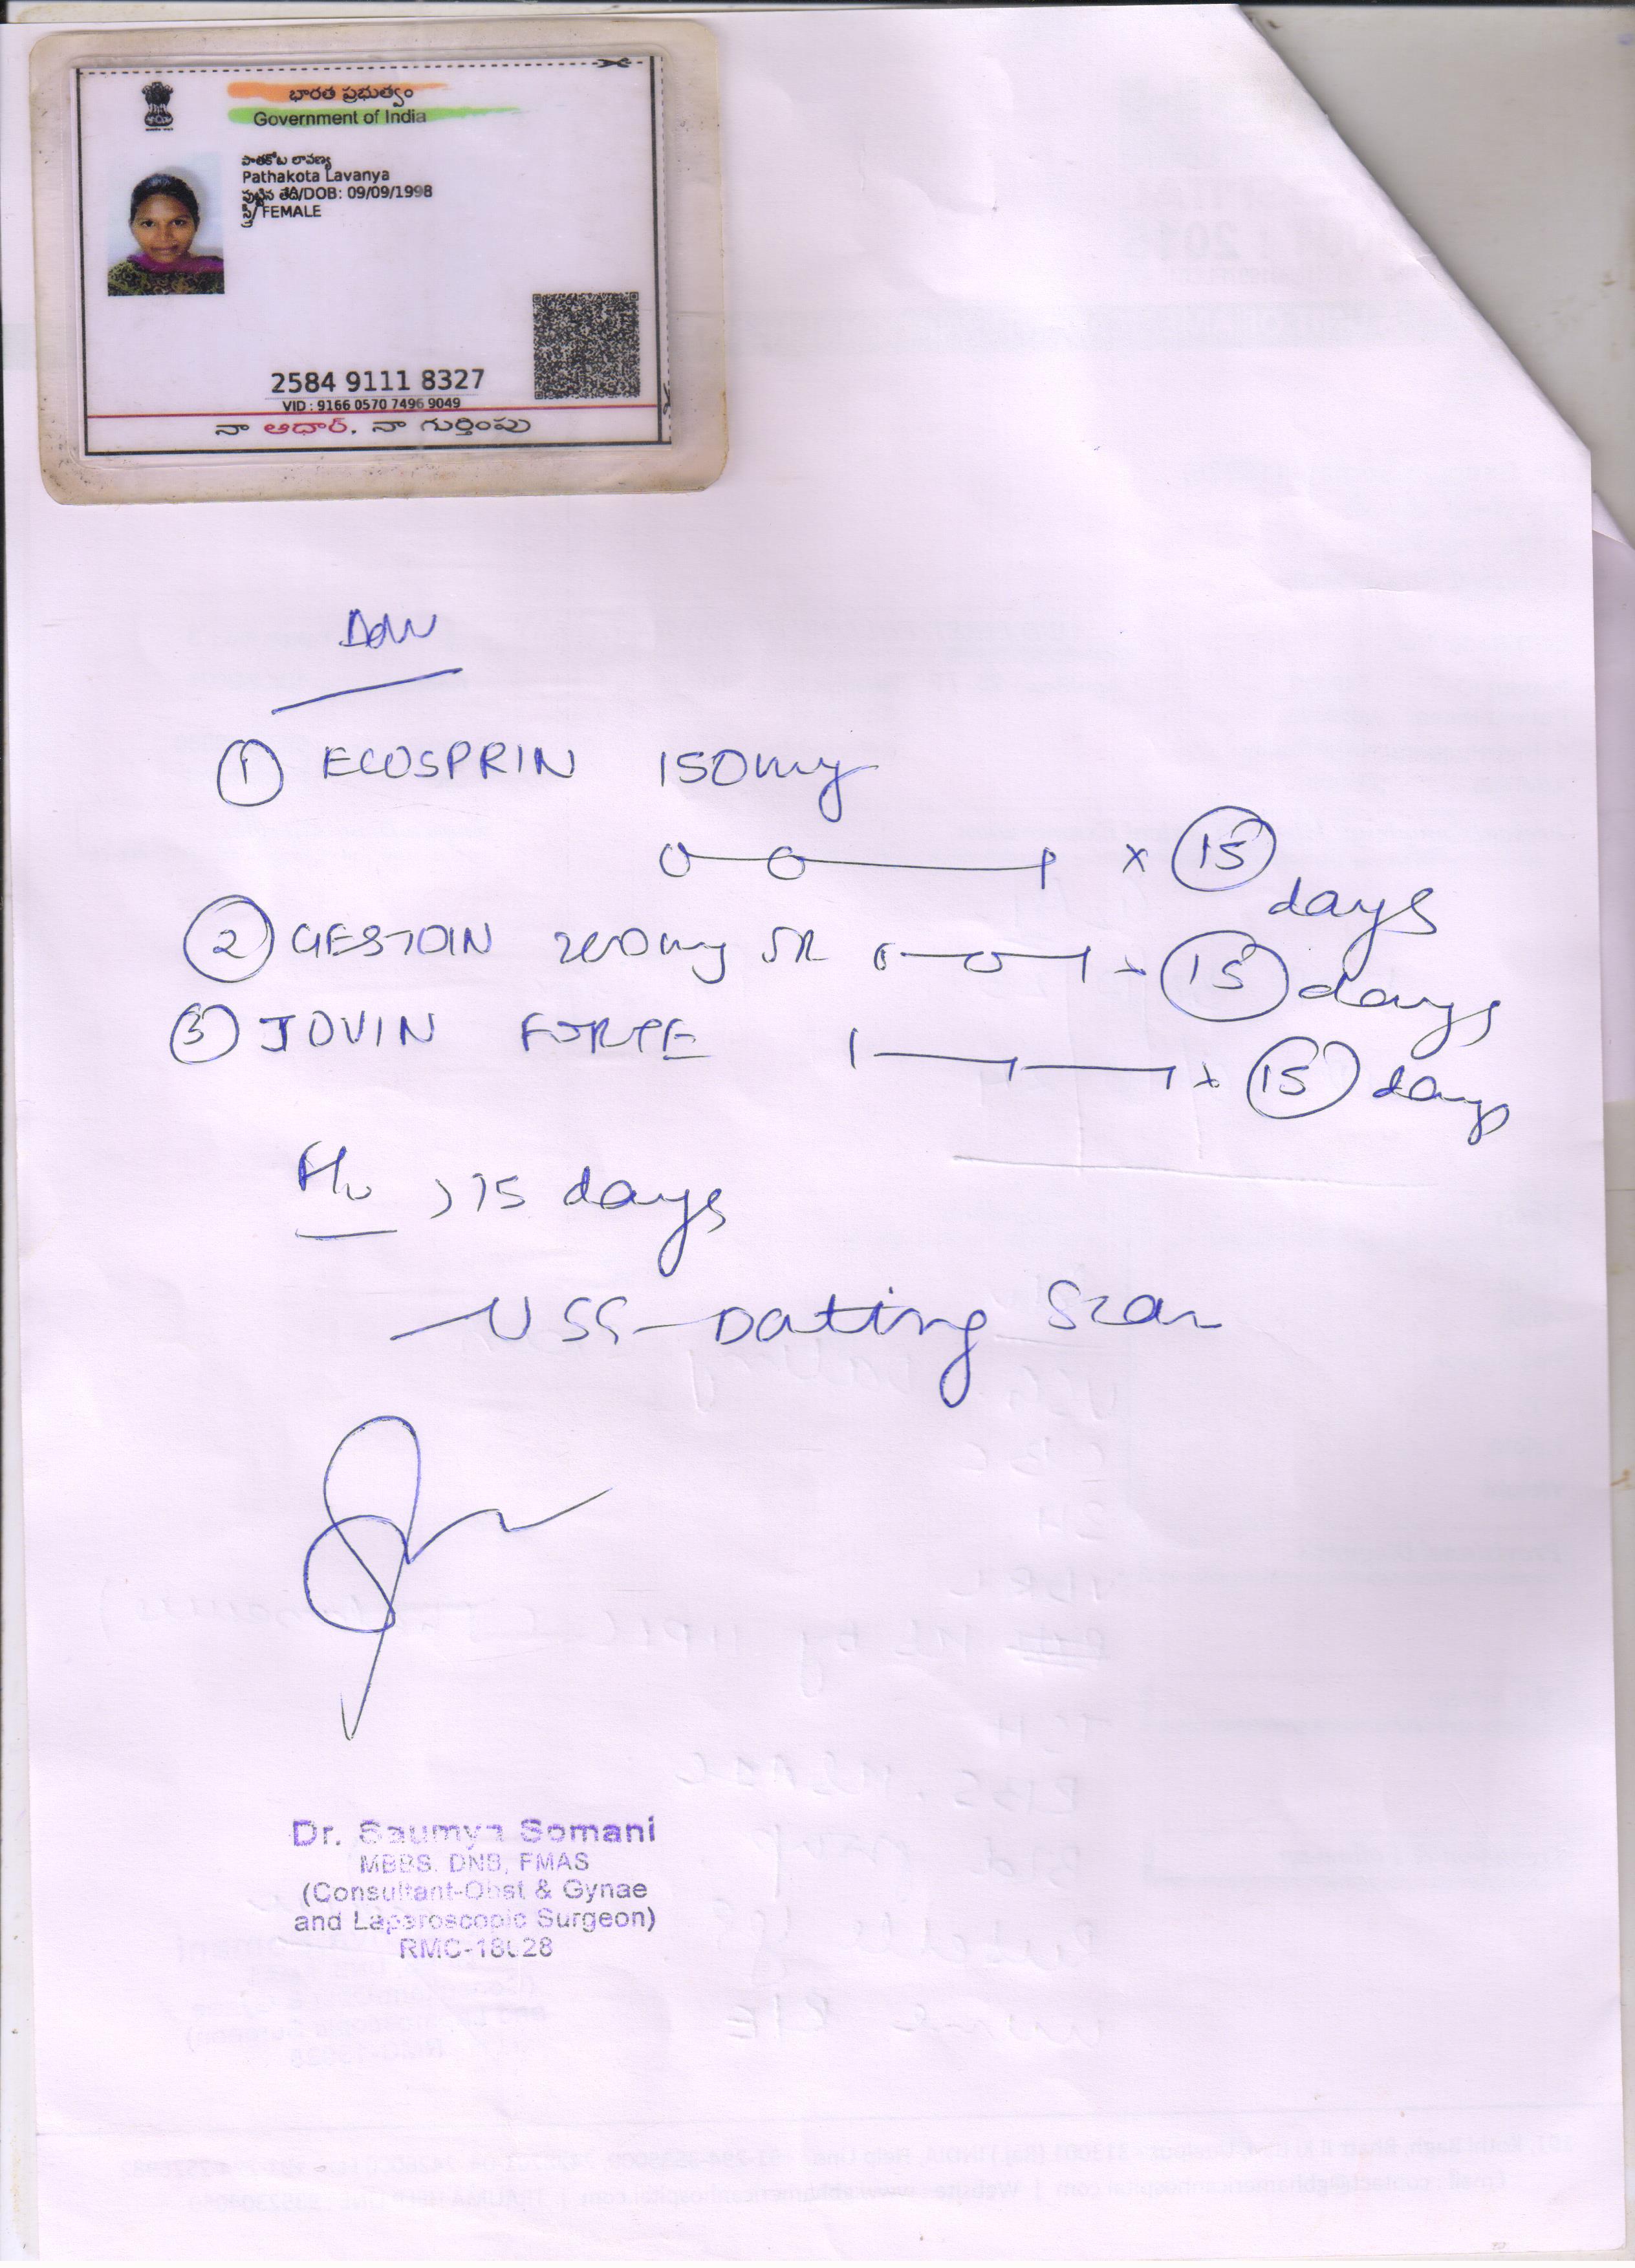 భారత ప్రభుత్వం
Government of India
పాతకోట లావణ్య
Pathakota Lavanya
పుట్టిన తేదీ/DOB: 09/09/1998
స్త్రీ/ FEMALE
2584 9111 8327
VID : 9166 0570 7496 9049
నా ఆధార్, నా గుర్తింపు
Adv
① ECOSPRIN 150mg
0—0—1 x 15 days
② GESTOIN 200mg SR 0—0—1 x 15 days
③ JOVIN FORTE 1—1—1 x 15 days
15 days
USG Datting Scan
Dr. Saumya Somani
MBBS. DNB, FMAS
(Consultant-Obst & Gynae
and Laparoscopic Surgeon)